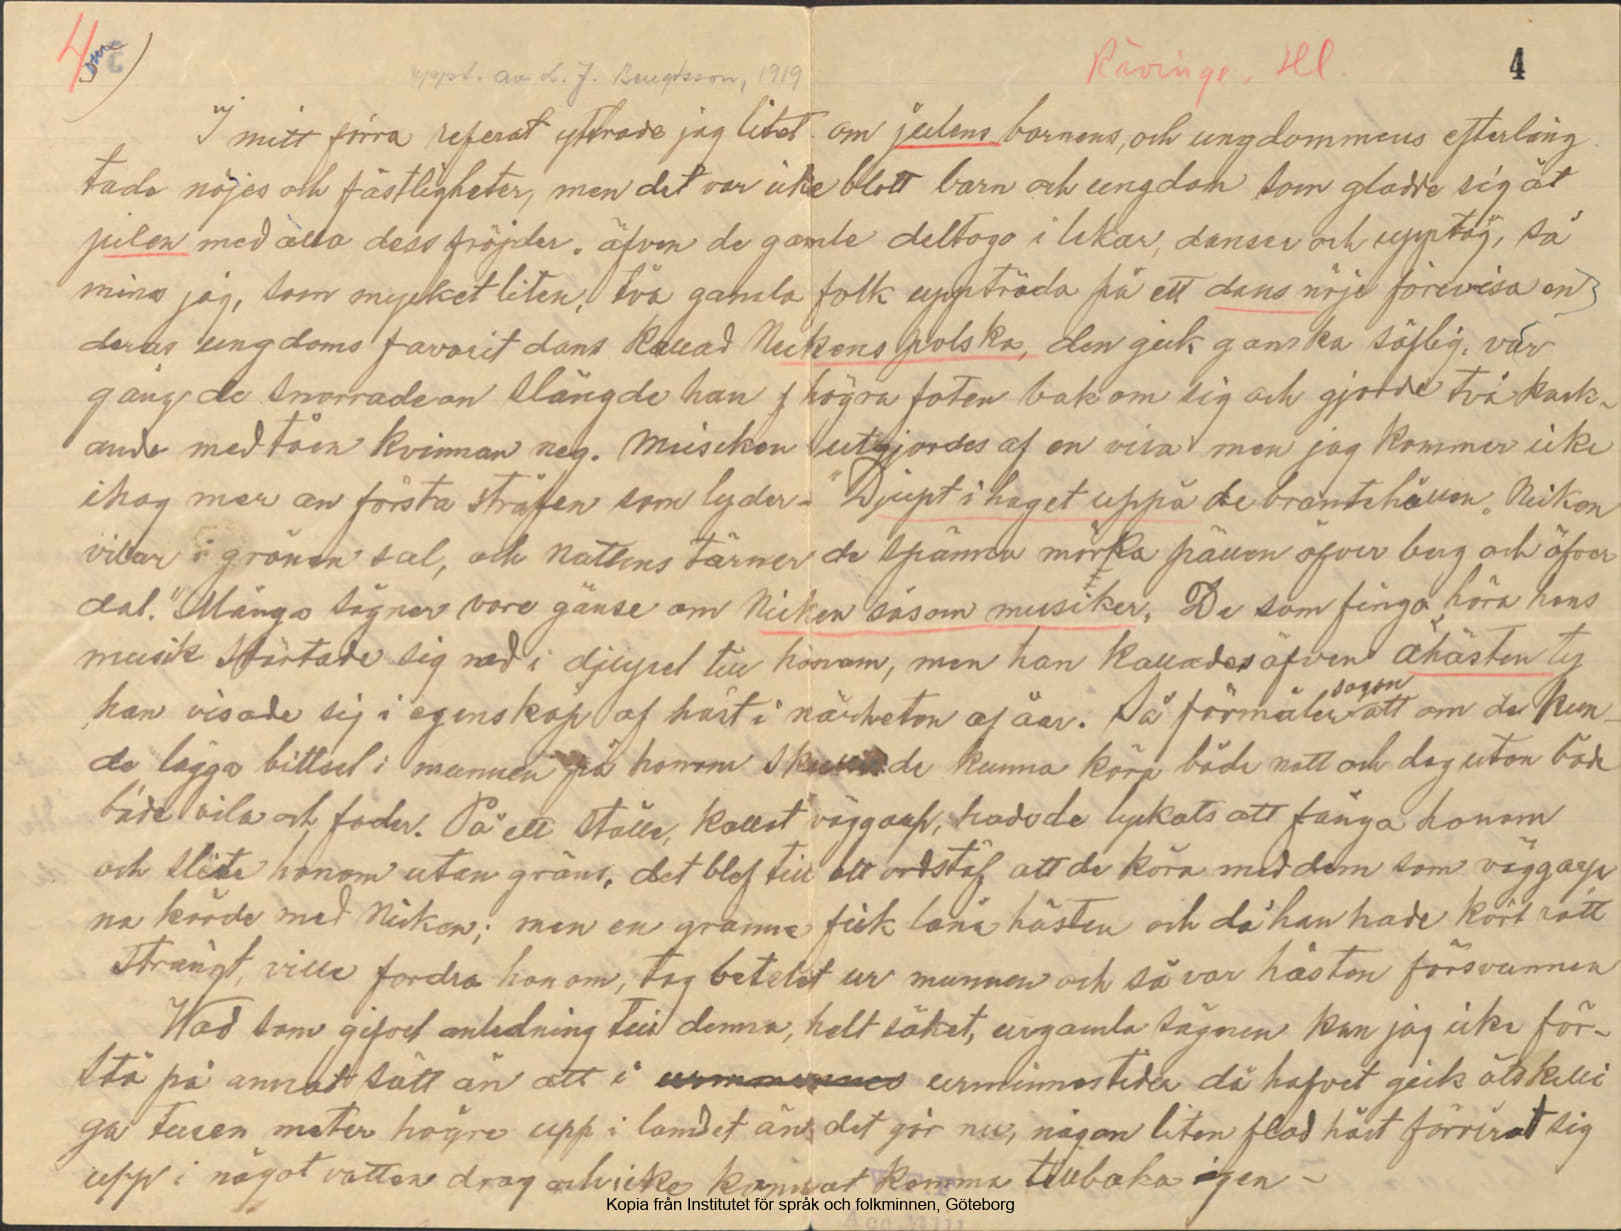 4
uppt. av L. J. Bengtsson, 1919
Rävinge, Hl.
4
I mitt förra referat yttrade jag litet om julens barnens, och ungdommens efterläng
tade nöjes och fästligheter, men det var icke blott barn och ungdom som gladde sig åt
julen med alla dess fröjder. äfven de gamle deltogo i lekar, danser och upptåg, så
mins jag, som mycket liten, två gamla folk uppträda på ett dans nöje förevisa en
deras ungdoms favorit dans kallad Neckens polska, den gick ganska söflig. var
gång de snorrade on slängde han högra foten bak om sig och gjorde två knack-
ande med tåen kvinnan neg. Musiken utgjordes af en visa men jag kommer icke
ihog mer än första strofen som lyder - "Djupt i haget uppå de brantehällen. Nicken
vilar i grönan sal, och nattens tärner de spänna mörka pällen öfver berg och öfver
dal." Många sägner vore gänse om Nicken såsom musiker. De som fingo höra hans
musik störtade sig ned i djupet till honom, men han kallades äfven åhästen ty
han visade sig i egenskap af häst i närheten af åar. Så förmäler sagen att om de kun-
de lägga bittsel i munnen på honom skulle de kunna köra både natt och dag utan både
både vila och foder. På ett ställe, kallat väggarp, hade de lyckats att fånga honom
och slite honom utan gräns. det blef till ett ordstäf att de köra med dem som väggarp
na körde med Nicken; men en granne fick låna hästen och då han hade kört rätt
strängt, ville fordra honom, tog betslet ur munnen och så var hästen försvunnen
Wad som gifvet anledning till denna, helt säket, urgamla sägnen kan jag icke för-
stå på annat sätt än att i urminnestider då hafvet gick åtskilli
ga tusen meter högre upp i landet än det gör nu, någon liten flod häst förrirat sig
upp i något vatten drag och icke kunnat komma tillbaka igen -
Kopia från Institutet för språk och folkminnen, Göteborg